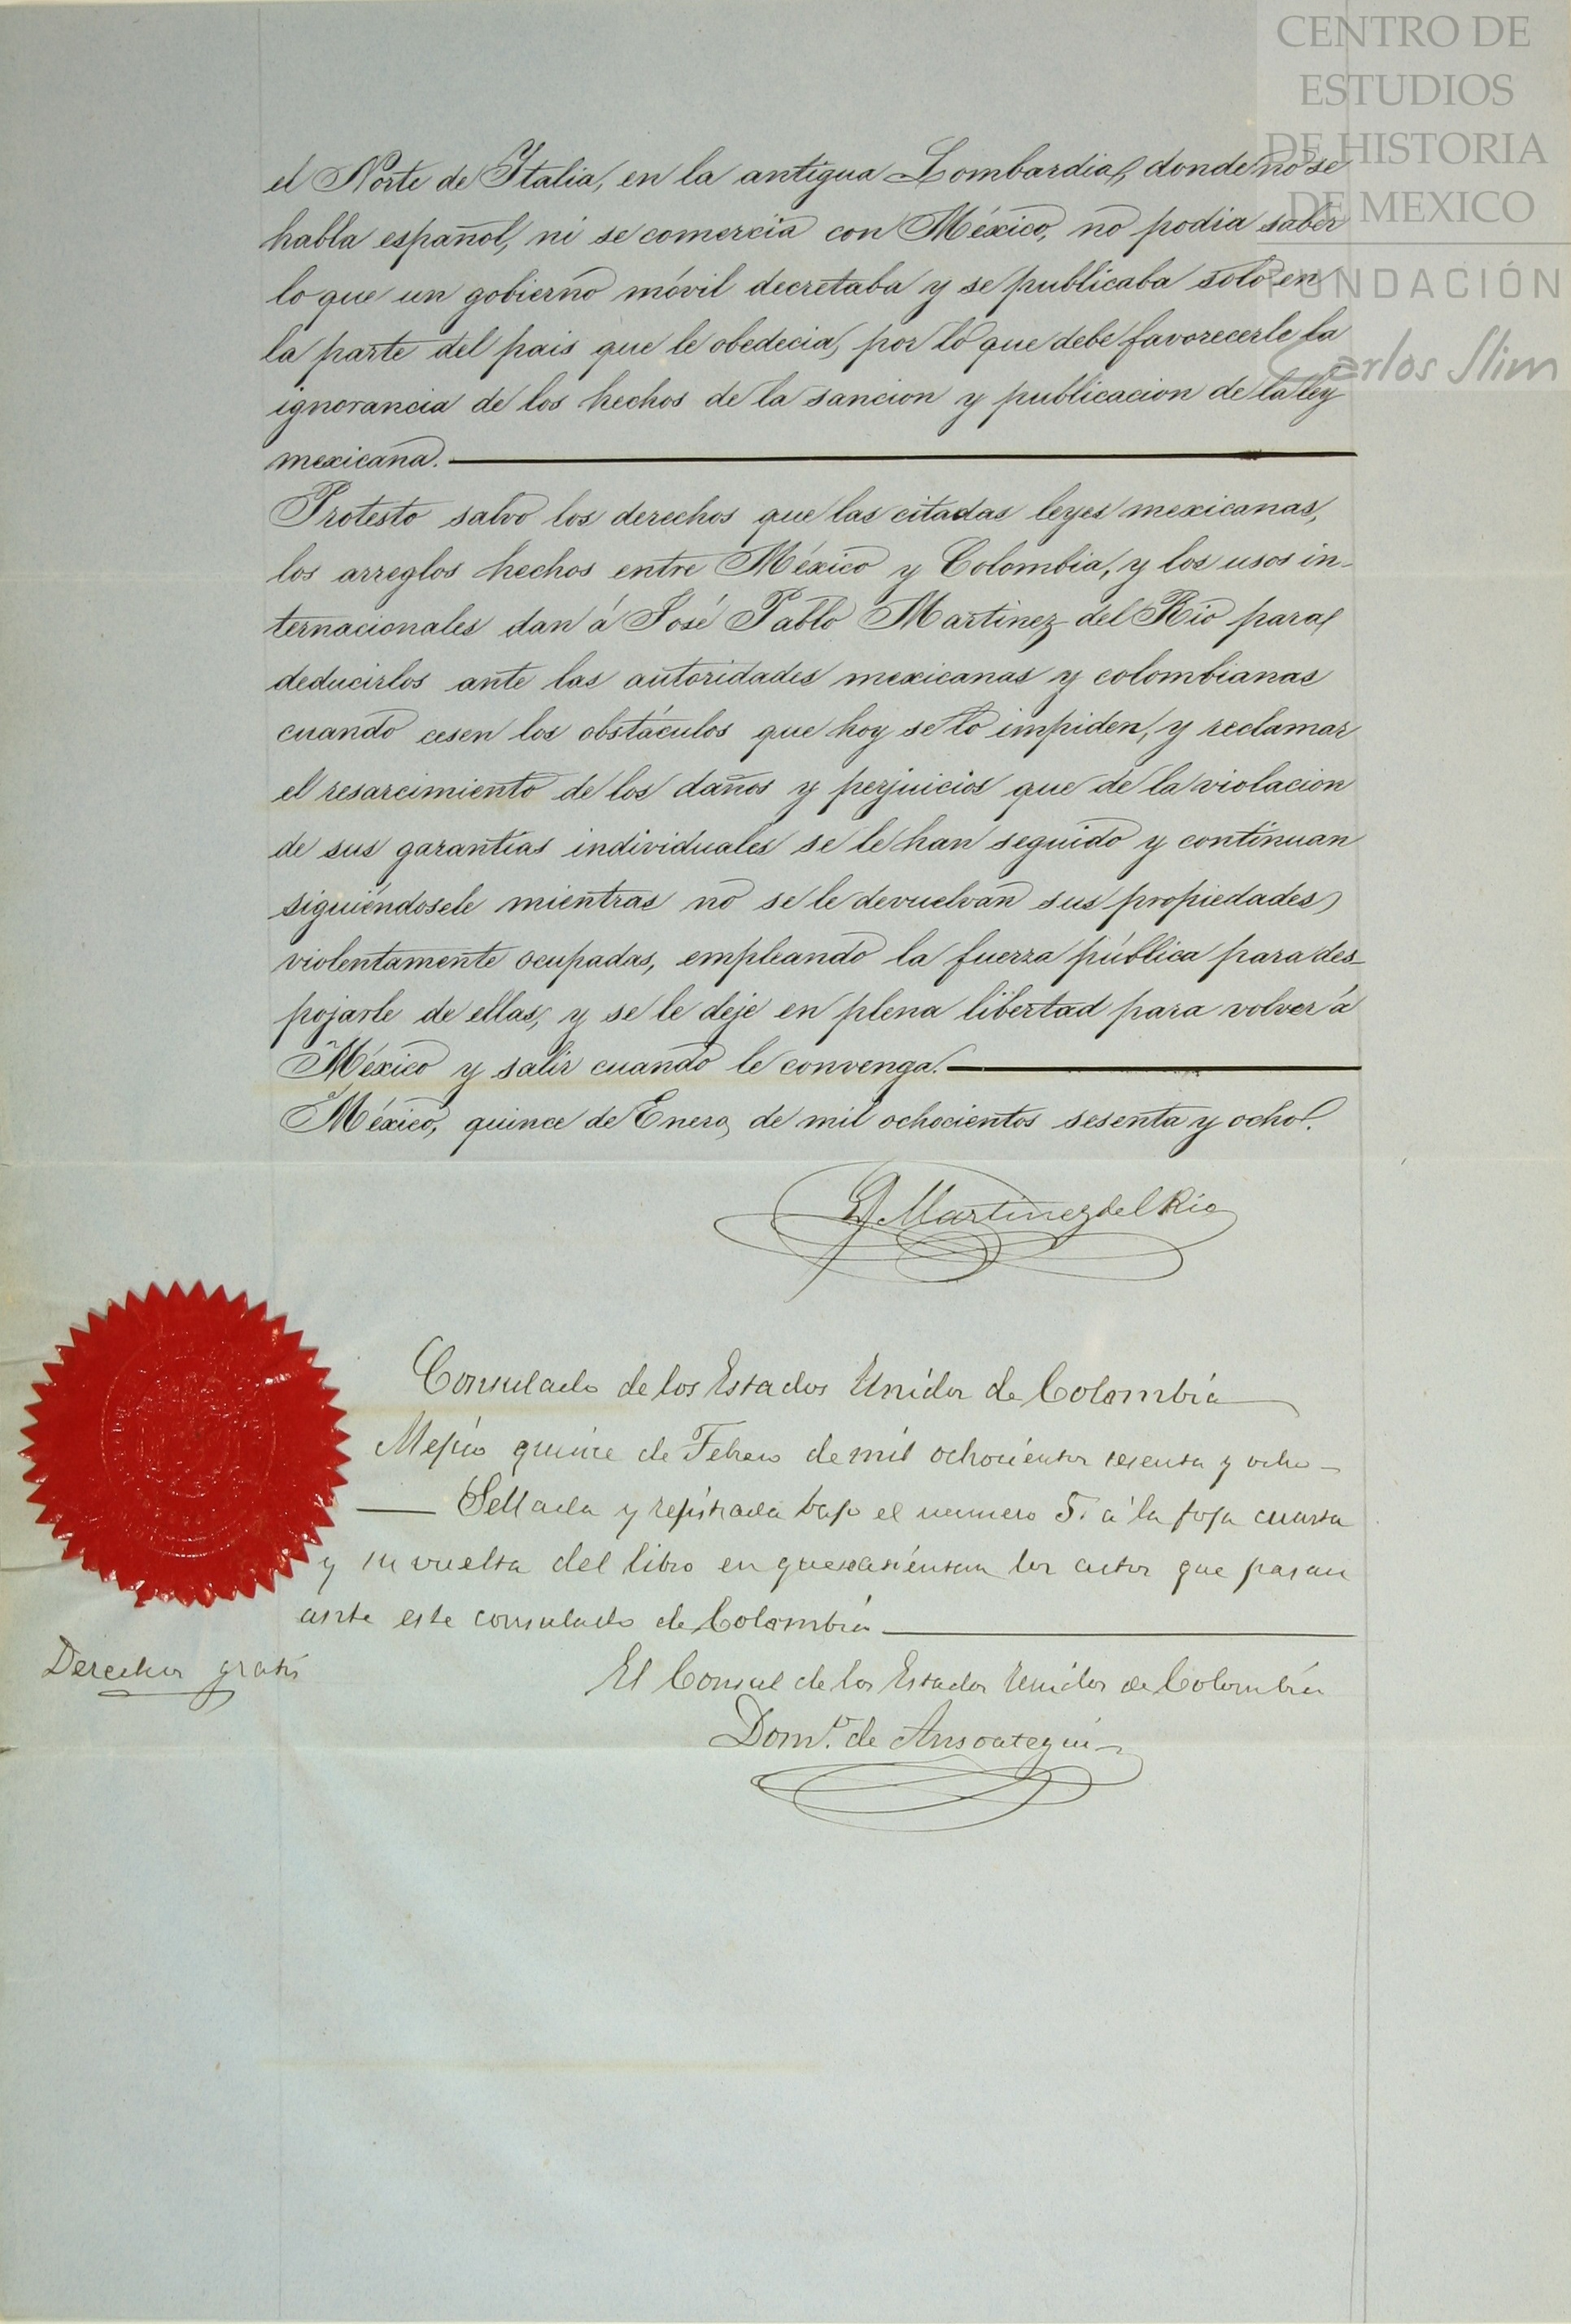 CENTRO DE
ESTUDIOS
DE HISTORIA
DE MEXICO
FUNDACIÓN
Carlos Slim
el Norte de Italia, en la antigua Lombardia, donde no se
habla español, ni se comercia con México, no podia saber
lo que un gobierno móvil decretaba y se publicaba solo en
la parte del pais que le obedecia, por lo que debe favorecerle la
ignorancia de los hechos de la sancion y publicacion de la ley
mexicana.
Protesto salvo los derechos que las citadas leyes mexicanas,
los arreglos hechos entre México y Colombia, y los usos in-
ternacionales dan á José Pablo Martinez del Rio para
deducirlos ante las autoridades mexicanas y colombianas
cuando cesen los obstáculos que hoy se lo impiden, y reclamar
el resarcimiento de los daños y perjuicios que de la violacion
de sus garantías individuales se le han seguido y continuan
siguiéndosele mientras no se le devuelvan sus propiedades
violentamente ocupadas, empleando la fuerza pública para des-
pojarle de ellas, y se le deje en plena libertad para volver á
México y salir cuando le convenga.
México, quince de Enero, de mil ochocientos sesenta y ocho.
Martinez del Rio
Consulado de los Estados Unidos de Colombia
Mejico quince de Febrero de mil ochocientos sesenta y ocho
Sellada y rejistrada bajo el numero 5. á la foja cuarta
y su vuelta del libro en que se asientan los actos que pasan
ante este consulado de Colombia
Derechos gratis
El Consul de los Estados Unidos de Colombia
Dom.º de Ansoategui